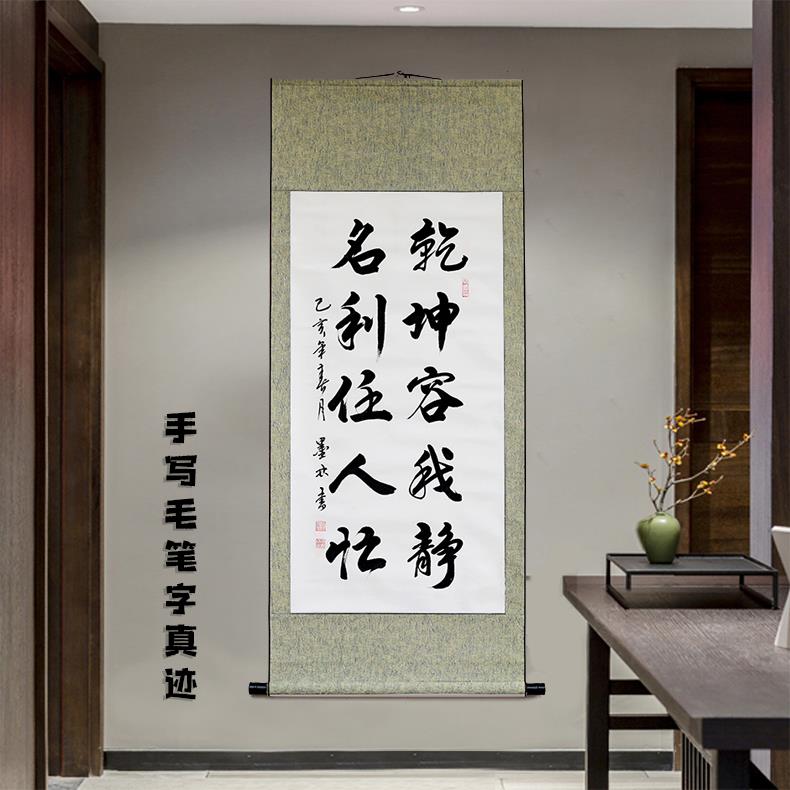 乾坤容我静
名利任人忙
己亥年春月 墨林书
手写毛笔字真迹